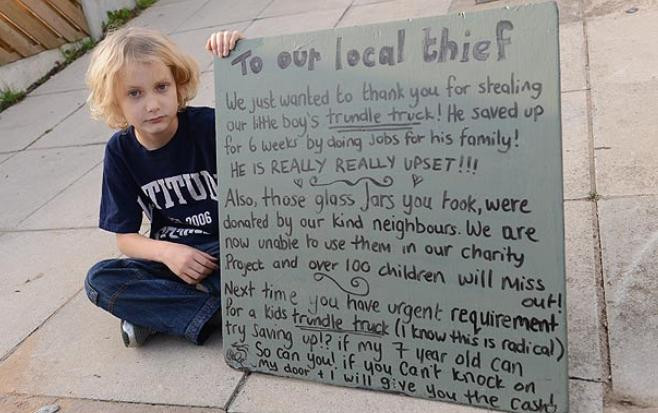 To our local thief
We just wanted to thank you for stealing
our little boy's trundle truck! He saved up
for 6 weeks by doing Jobs for his family!
HE IS REALLY REALLY UPSET!!!
Also, those glass Jars you took, were
donated by our kind neighbours. We are
now unable to use them in our charity
Project and over 100 children will miss
out!
Next time you have urgent requirement
for a kids trundle truck (i know this is radical)
try saving up!? if my 7 year old can
So can you! if you can't knock on
my door + I will give you the cash!
TITU
2006